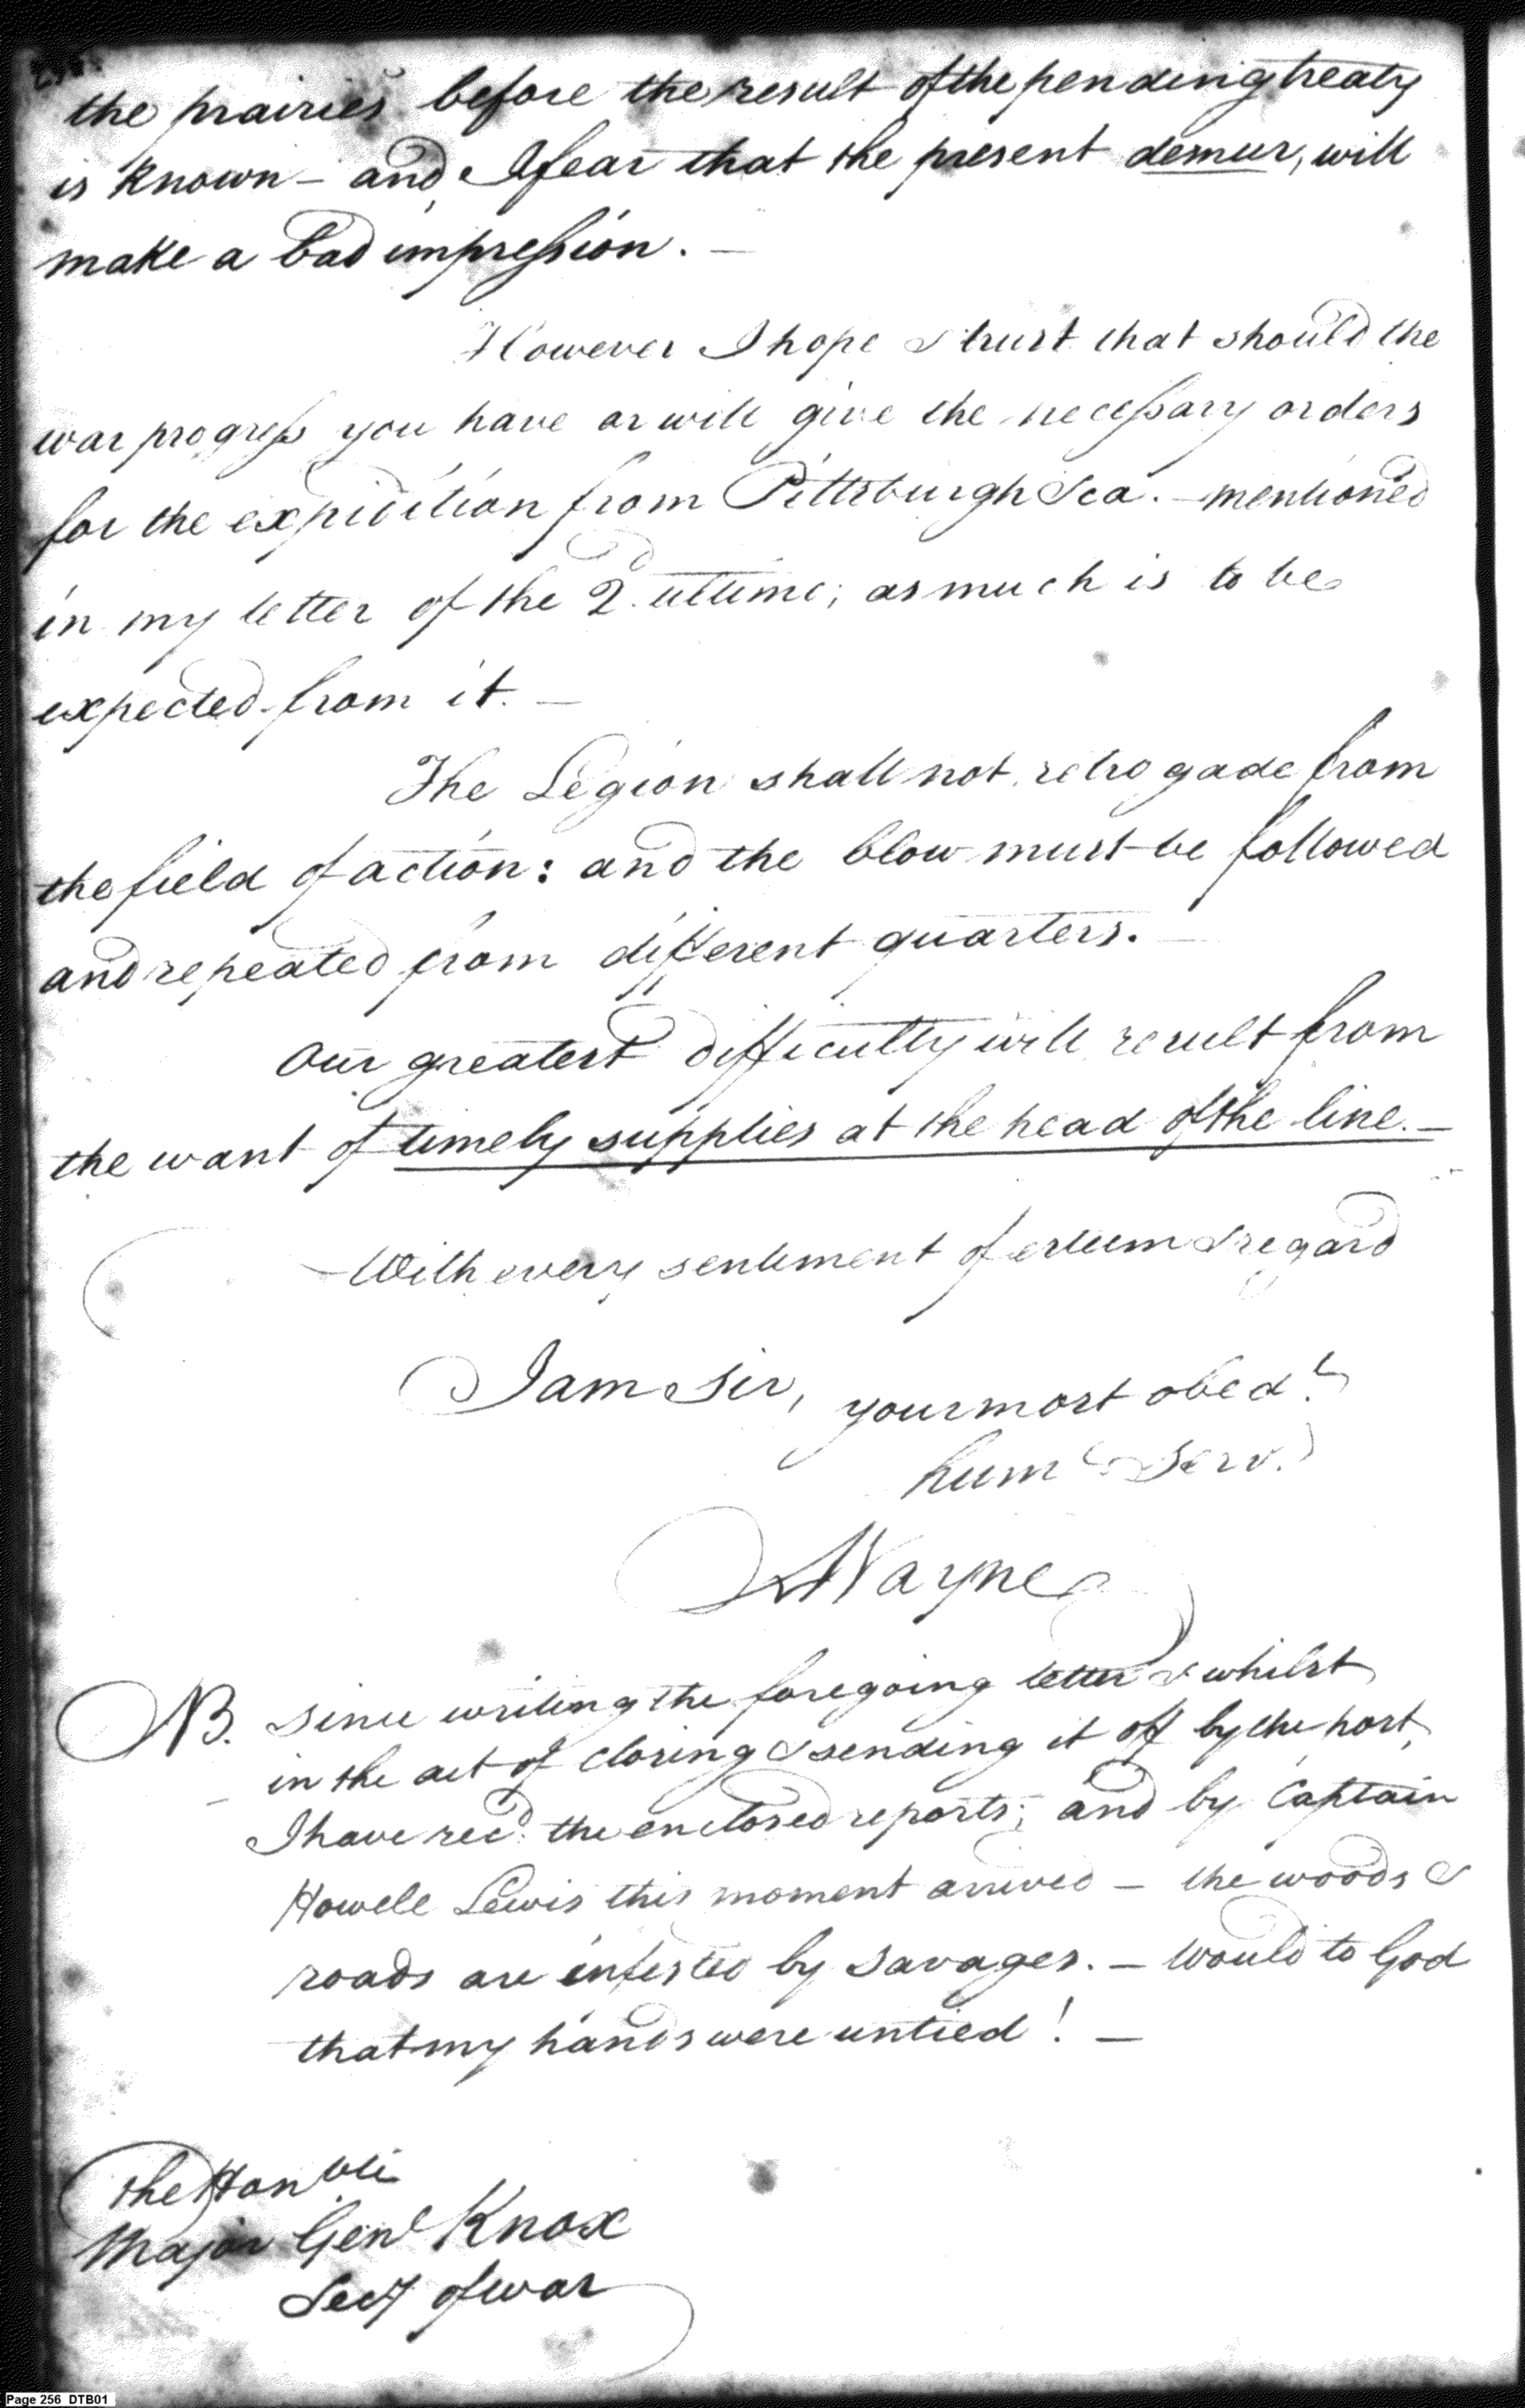 the prairies before the result of the pending treaty
is known – and, I fear that the present demur, will
make a bad impression. –
However I hope & trust that should the
war progress you have or will give the necessary orders
for the expidition from Pittsburgh &ca. – mentioned
in my letter of the 2d. ultimo; as much is to be
expected from it. –
The Legion shall not retrogade from
the field of action: and the blow must be followed
and repeated from different quarters. –
Our greatest difficulty will result from
the want of timely supplies at the head of the line. –
With every sentiment of esteem & regard
I am Sir, your most obedt
huml Serv.
AWayne
NB. since writing the foregoing letter & whilst
in the act of closing & sending it off by the post,
I have recd. the enclosed reports; and by Captain
Howell Lewis this moment arrived – the woods &
roads are infested by savages. – would to God
that my hands were untied! –
The Honble
Major Genl Knox
Secy of war
Page 256 DTB01